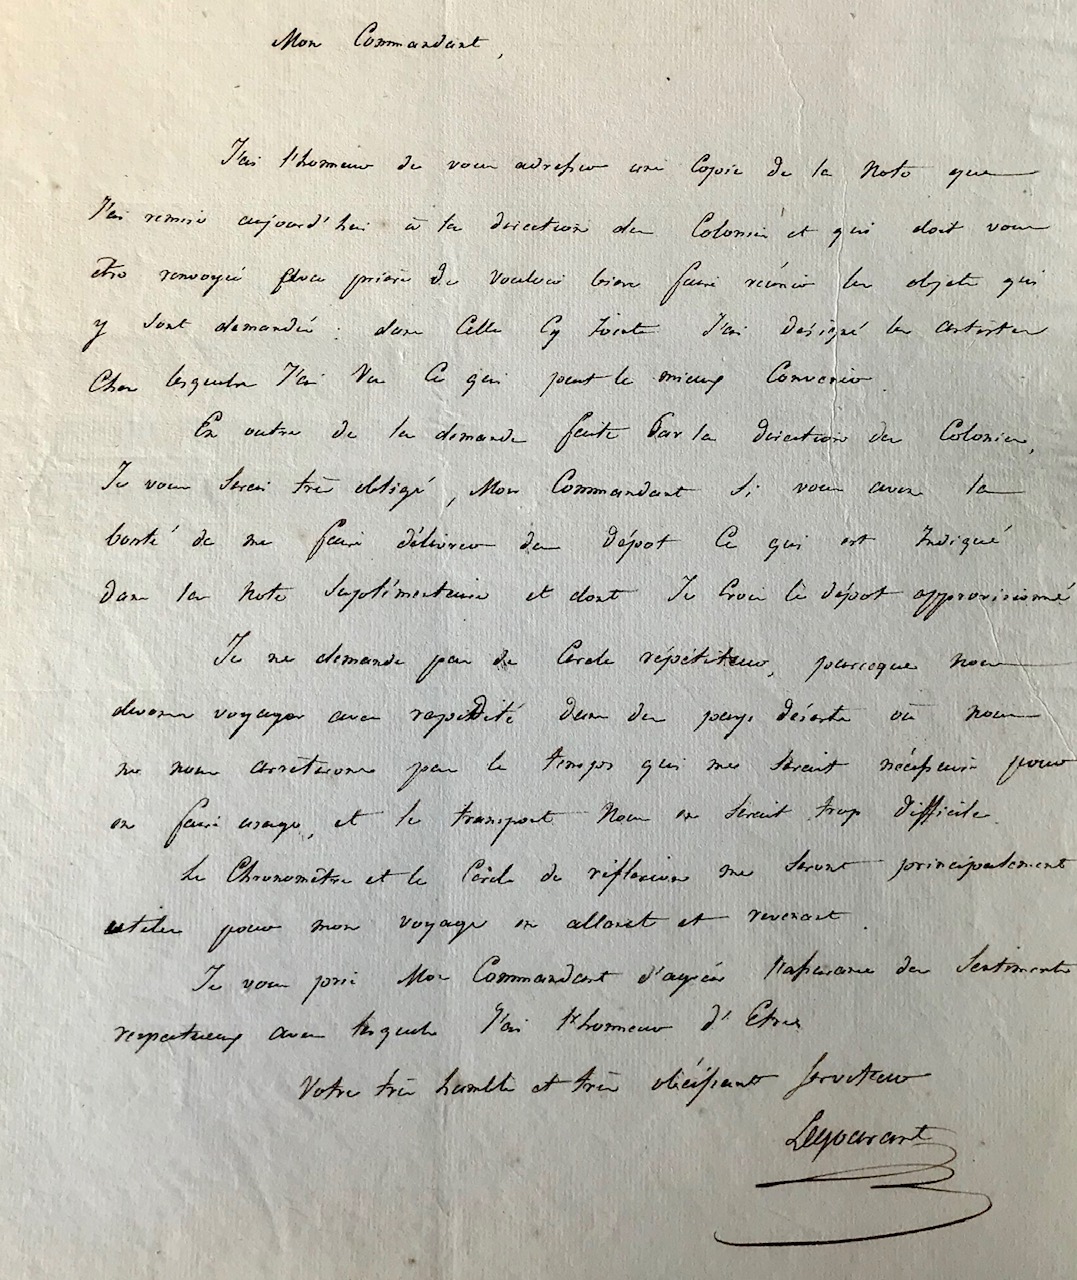 Mon Commandant,
J'ai l'honneur de vous adresser une Copie de la Note que
J'ai remise aujourd'hui à la direction des Colonies et qui doit vous
être renvoyée avec prière de vouloir bien faire réunir les objets qui
y sont demandés : dans Celle Cy Jointe J'ai désigné les artistes
Chez lesquels J'ai Vu Ce qui peut le mieux Convenir.
En outre de la demande faite Par la direction des Colonies,
Je vous Serais très obligé, Mon Commandant Si vous avez la
bonté de me faire délivrer du dépot Ce qui est Indiqué
Dans la Note Suplémentaire et dont Je Crois le dépot approvisionné
Je ne demande pas de Cercle répétiteur, parceque nous
devons voyager avec rapidité dans des pays déserts où nous
ne nous arrêterons pas le temps qui me Serait nécessaire pour
en faire usage, et le transport Nous en Serait trop difficile.
Le Chronomètre et le Cercle de réflexion me Seront principalement
utiles pour mon voyage en allant et revenant.
Je vous prie Mon Commandant d'agréer l'assurance des Sentiments
respectueux avec lesquels J'ai l'honneur d'Etre
Votre très humble et très obéissant Serviteur
Legouarant